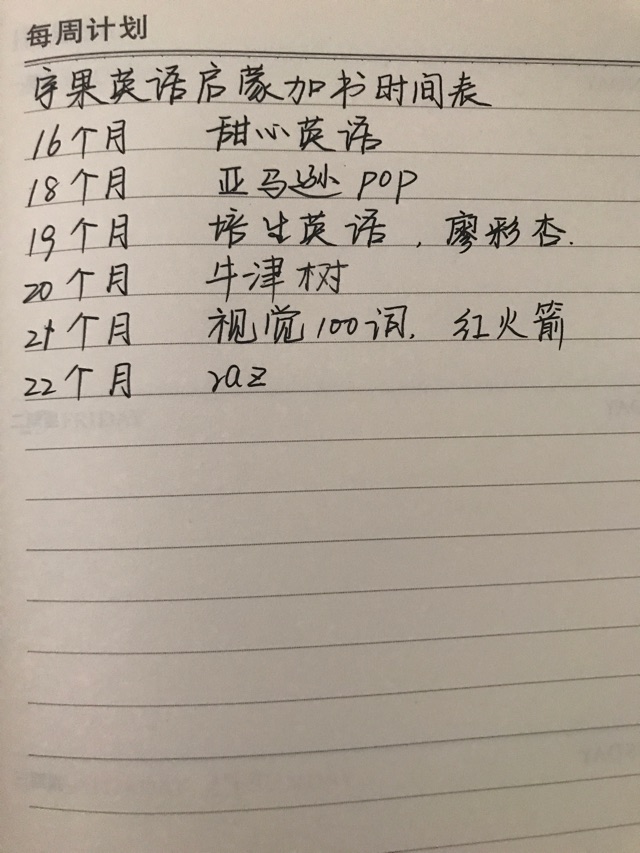 每周计划
宇果英语启蒙加书时间表
16个月 甜心英语
18个月 亚马逊pop
19个月 培生英语，廖彩杏.
20个月 牛津树
21个月 视觉100词, 红火箭
22个月 raz